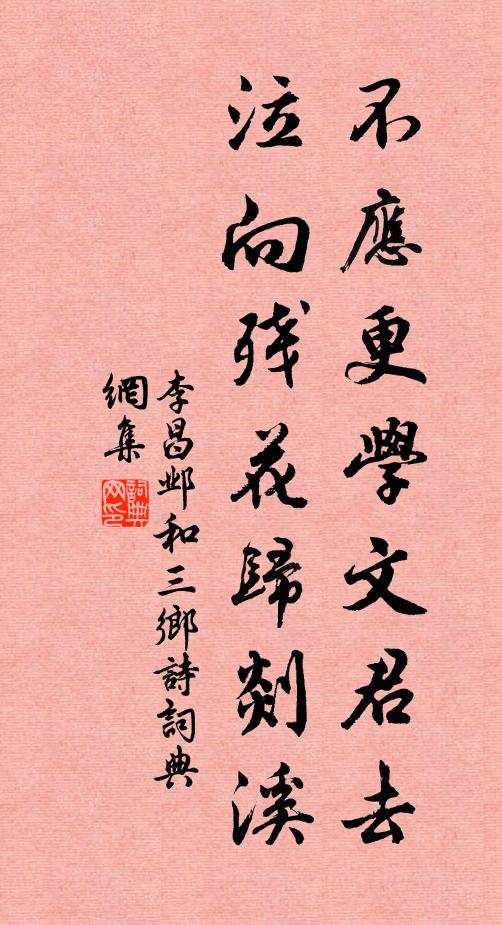 不應更學文君去
泣向残花歸剡溪
李昌邺和三鄉詩詞典
網集
詞典網印